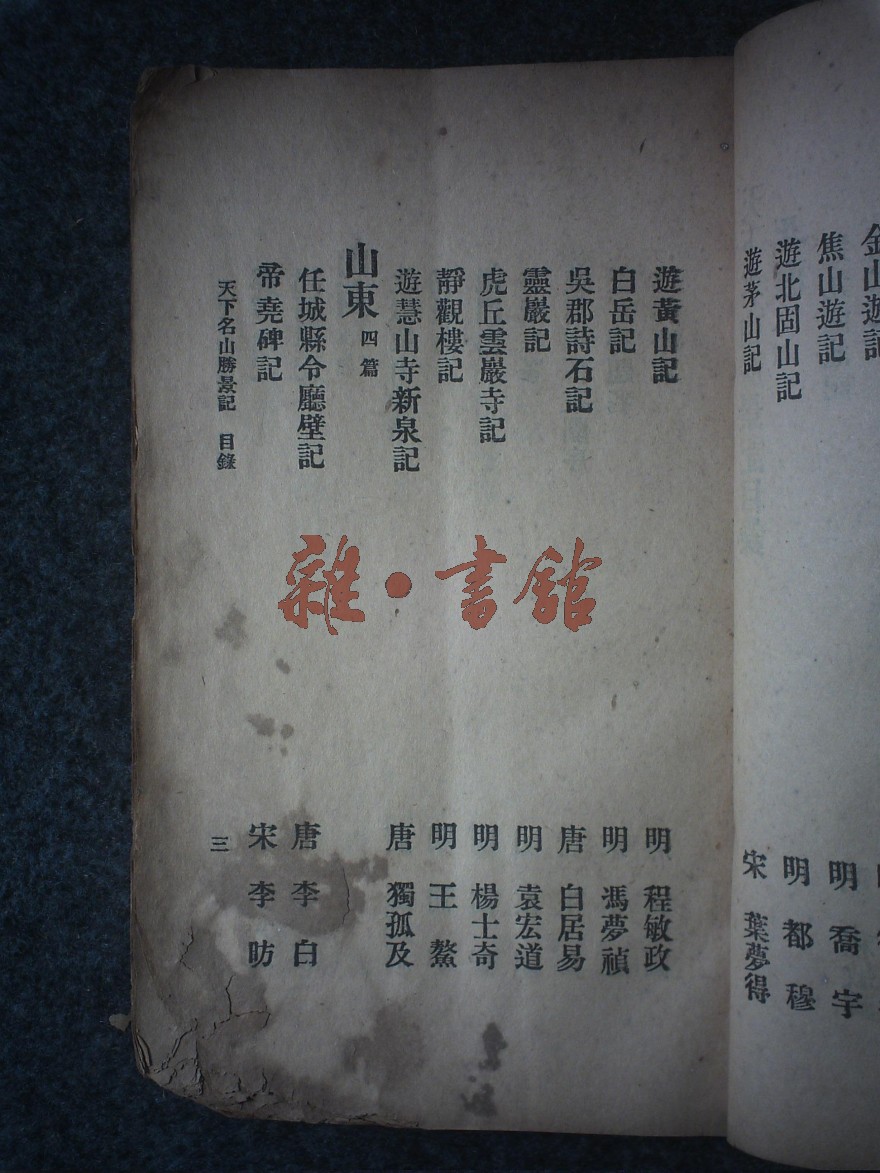 金山遊記
焦山遊記 明 喬宇
遊北固山記 明 都穆
遊茅山記 宋 葉夢得
遊黃山記 明 程敏政
白岳記 明 馮夢禎
吳郡詩石記 唐 白居易
靈巖記 明 袁宏道
虎丘雲巖寺記 明 楊士奇
靜觀樓記 明 王鏊
遊慧山寺新泉記 唐 獨孤及
山東 四篇
任城縣令廳壁記 唐 李白
帝堯碑記 宋 李昉
天下名山勝景記 目錄 三
雜·書館